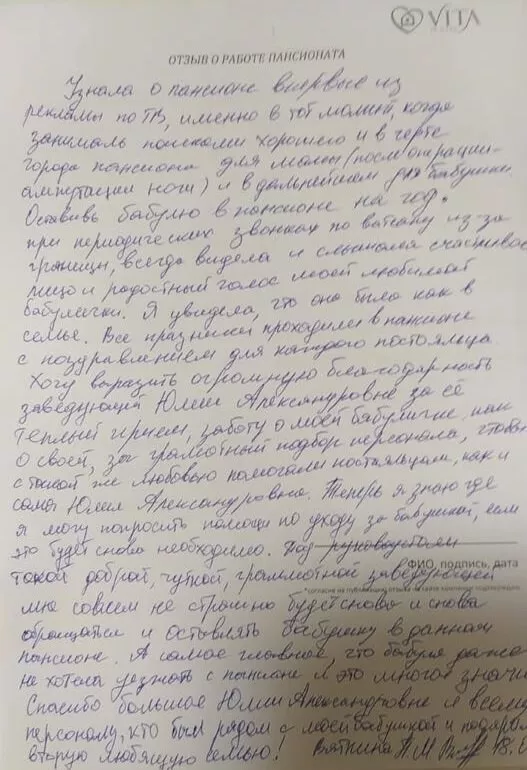 VITA
ОТЗЫВ О РАБОТЕ ПАНСИОНАТА
Узнала о пансионе впервые из
рекламы по ТВ, именно в тот момент, когда
занималась поисками хорошего и в черте
города пансиона для мамы (после операции-
ампутации ноги) и в дальнейшем для бабушки.
Оставив бабулю в пансионе на год,
при периодических звонках по ватсапу из-за
границы, всегда видела и слышала счастливое
лицо и радостный голос моей любимой
бабулечки. Я увидела, что она была как в
семье. Все праздники проходили в пансионе
с поздравлением для каждого постояльца.
Хочу выразить огромную благодарность
заведующей Юлии Александровне за её
теплый прием, заботу о моей бабушке, как
о своей, за грамотный подбор персонала, чтобы
с такой же любовью помогали постояльцам, как и
сама Юлия Александровна. Теперь я знаю где
я могу попросить помощи по уходу за бабушкой, если
это будет снова необходимо. Под руководством
ФИО, подпись, дата
такой доброй, чуткой, грамотной заведующей
мне совсем не страшно будет снова и снова
обращаться и оставлять бабушку в данном
пансионе. А самое главное, что бабуля даже
не хотела уезжать с пансиона и это многое значит
Спасибо большое Юлии Александровне и всему
персоналу, кто был рядом с моей бабушкой и подарил
вторую любящую семью! Вяткина